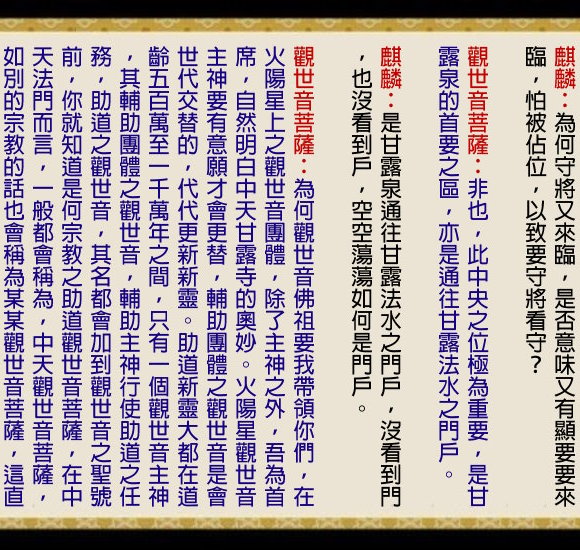 麒麟：為何守將又來臨，是否意味又有顯要要來
臨，怕被佔位，以致要守將看守？
觀世音菩薩：非也，此中央之位極為重要，是甘
露泉的首要之區，亦是通往甘露法水之門戶。
麒麟：是甘露泉通往甘露法水之門戶，沒看到門
，也沒看到戶，空空蕩蕩如何是門戶。
觀世音菩薩：為何觀世音佛祖要我帶領你們，在
火陽星上之觀世音團體，除了主神之外，吾為首
席，自然明白中天甘露寺的奧妙。火陽星觀世音
主神要有意願才會更替，輔助團體之觀世音是會
世代交替的，代代更新新靈。助道新靈大都在道
齡五百萬至一千萬年之間，只有一個觀世音主神
，其輔助團體之觀世音，輔助主神行使助道之任
務，助道之觀世音，其名都會加到觀世音之聖號
前，你就知道是何宗教之助道觀世音菩薩，在中
天法門而言，一般都會稱為，中天觀世音菩薩，
如別的宗教的話也會稱為某某觀世音菩薩，這直